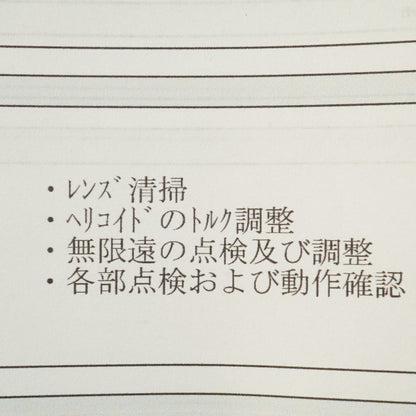 ・ﾚﾝｽﾞ清掃
・ﾍﾘｺｲﾄﾞのﾄﾙｸ調整
・無限遠の点検及び調整
・各部点検および動作確認